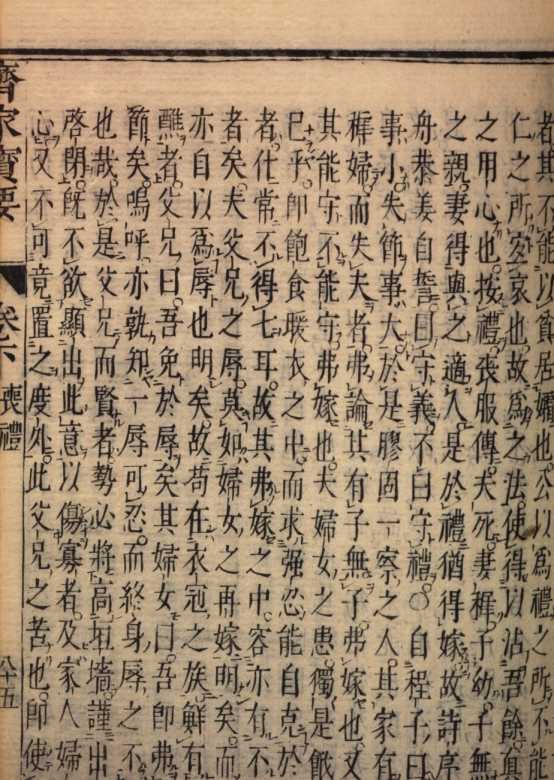 者其不能以貧居孀也公以為禮之所不能
仁之所安哀也故為之法使得以沾吾餘
之用心也按禮喪服傳夫死妻穉子幼子無
之親妻得與之適人是於禮猶得嫁故詩序
舟恭姜自誓曰守義不曰守禮○自程子曰
事小失節事大於是膠固一察之人其家有
穉婦而失夫者弗論其有子無子弗嫁也又
其能守不能守弗嫁也夫婦女之患獨是餓
已乎即飽食暖衣之中而求强忍能自克於
者仕常不得七耳故其弗嫁之中容亦有不
者矣夫父兄之辱莫如婦女之再嫁明矣而
亦自以爲辱也明矣故苟在衣冠之族鮮有
醮者父兄曰吾免於辱矣其婦女曰吾即弗
節矣嗚呼亦孰知一辱可忍而終身辱之不
也哉於是父兄而賢者勢必將高垣墻謹出
啓閉旣不欲顯出此意以傷寡者及家人婦
心又不可竟置之度外此父兄之苦也即使
齊家寶要 卷六 喪禮 八十五